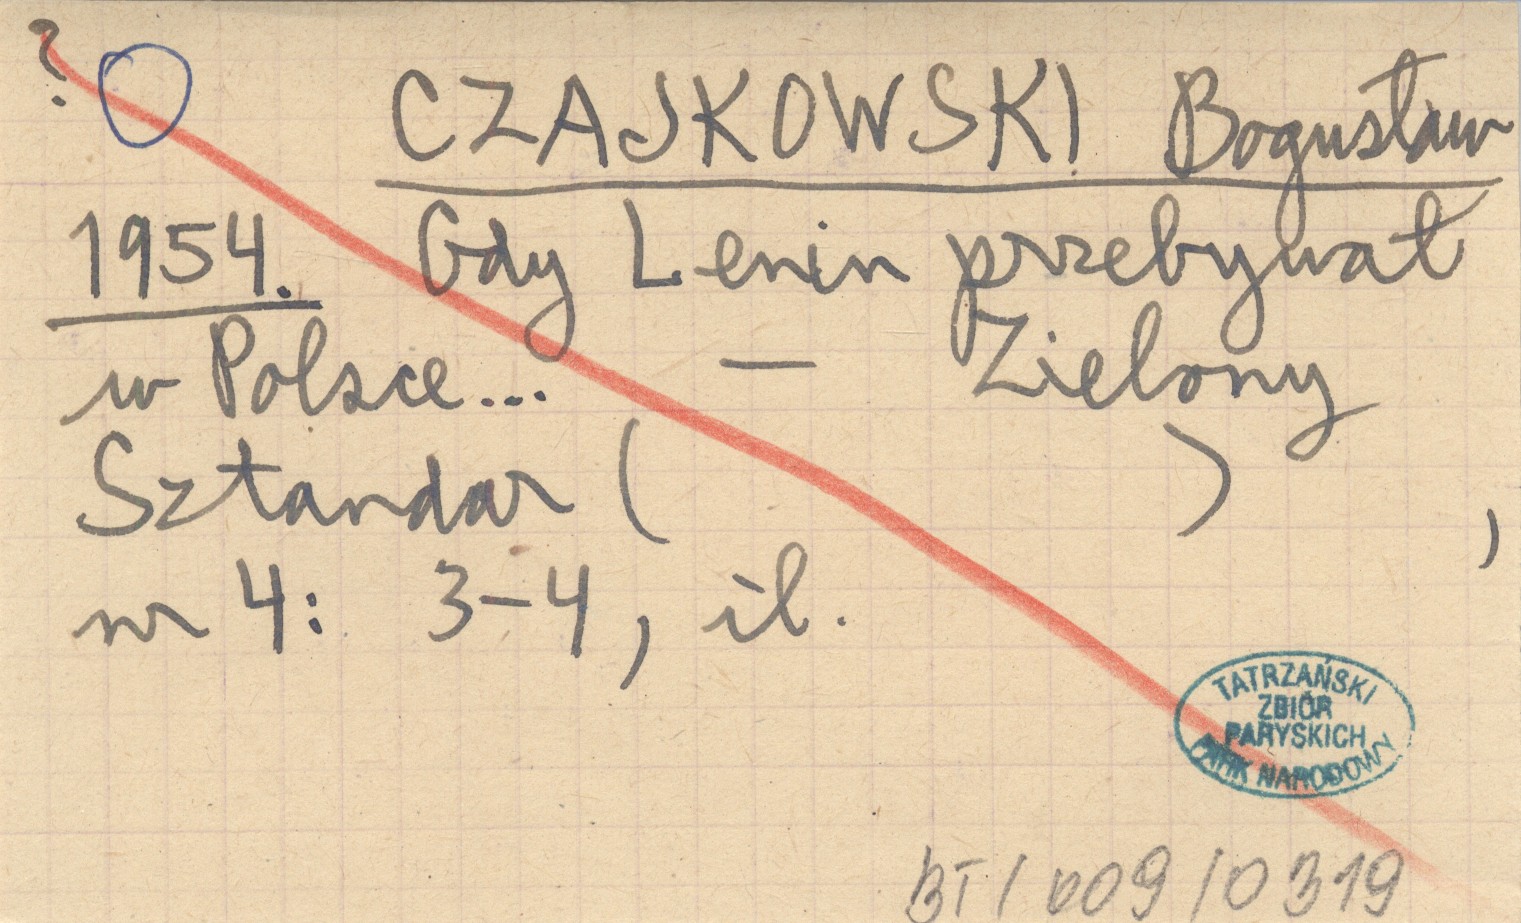 ?
CZAJKOWSKI Bogusław
1954. Gdy Lenin przebywał
w Polsce... — Zielony
Sztandar ( ) ,
nr 4: 3-4, il.
TATRZAŃSKI
ZBIÓR
PARYSKICH
PARK NARODOWY
BT/009/0319